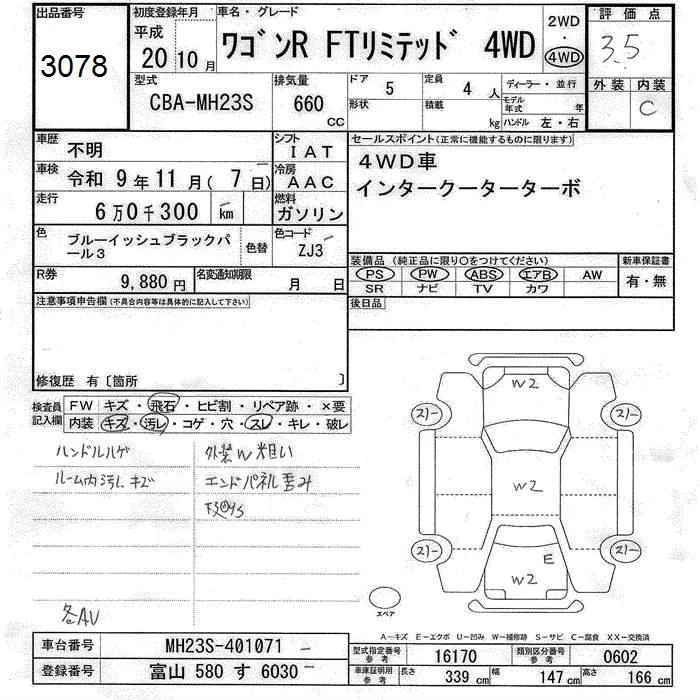 出品番号
3078
初度登録年月
平成
20 10 月
車名・グレード
ワゴンR FTリミテッド 4WD
2WD
・
4WD
評価点
3.5
外装 内装
C
型式
CBA-MH23S
排気量
660 CC
ドア 5
形状
定員 4 人
積載 kg
ディーラー・並行
モデル年式 年
ハンドル 左・右
車歴 不明
車検 令和 9 年 11 月 ( 7 日)
走行 6万0千300 km
色 ブルーイッシュブラックパール3
色替
シフト IAT
冷房 AAC
燃料 ガソリン
色コード ZJ3
R券 9,880 円
名変通知期限 月 日
セールスポイント(正常に機能するものに限ります)
4WD車
インタークーターターボ
装備品(純正品に限り○をつけてください)
PS PW ABS エアB AW
SR ナビ TV カワ
新車保証書
有・無
後日品
注意事項申告欄(不具合内容等は具体的に記入して下さい)
修復歴 有〔箇所 〕
検査員記入欄
FW キズ・飛石・ヒビ割・リペア跡・×要
内装 キズ・汚レ・コゲ・穴・スレ・キレ・破レ
ハンドルハゲ
ルーム内汚レ キズ
外装W粗い
エンドパネル歪み
各AV
W2
スリー スリー
W2
スリー スリー
E
W2
スペア
A−キズ E−エクボ U−凹み W−補修跡 S−サビ C−腐食 XX−交換済
車台番号 MH23S-401071
登録番号 富山 580 す 6030
型式指定番号 参考 16170
類別区分番号 参考 0602
車庫証明用 参考 長さ 339 cm 幅 147 cm 高さ 166 cm